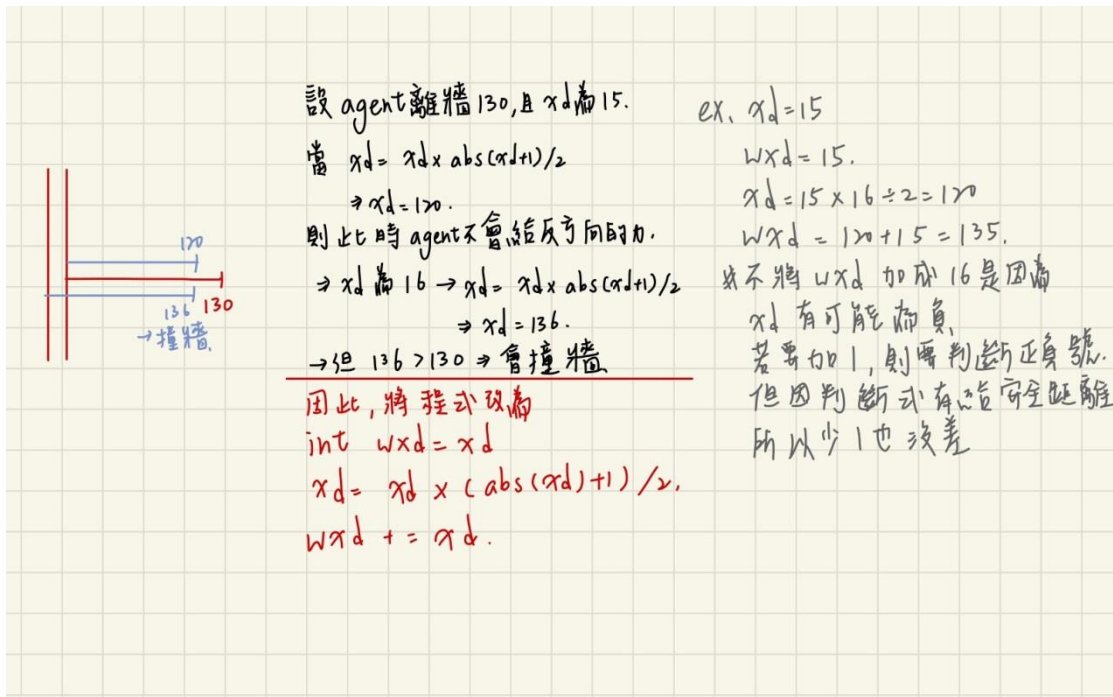 設 agent離牆130,且 xd為15.
當 xd= xd x abs(xd+1)/2
⇒ xd=120.
則此時agent不會給反方向的力.
⇒ xd 為 16 → xd= xd x abs(xd+1)/2
⇒ xd=136.
→但 136 >130 ⇒ 會撞牆
因此, 將程式改為
int wxd = xd
xd= xd x (abs(xd)+1)/2.
wxd += xd.
120
136
130
→撞牆.
ex. xd=15
wxd=15.
xd=15 x 16 ÷ 2 = 120
wxd = 120+15 = 135.
不將 wxd 加成 16 是因為
xd 有可能為負
若要加 1, 則要判斷正負號.
但因判斷式有給安全距離
所以少 1 也沒差